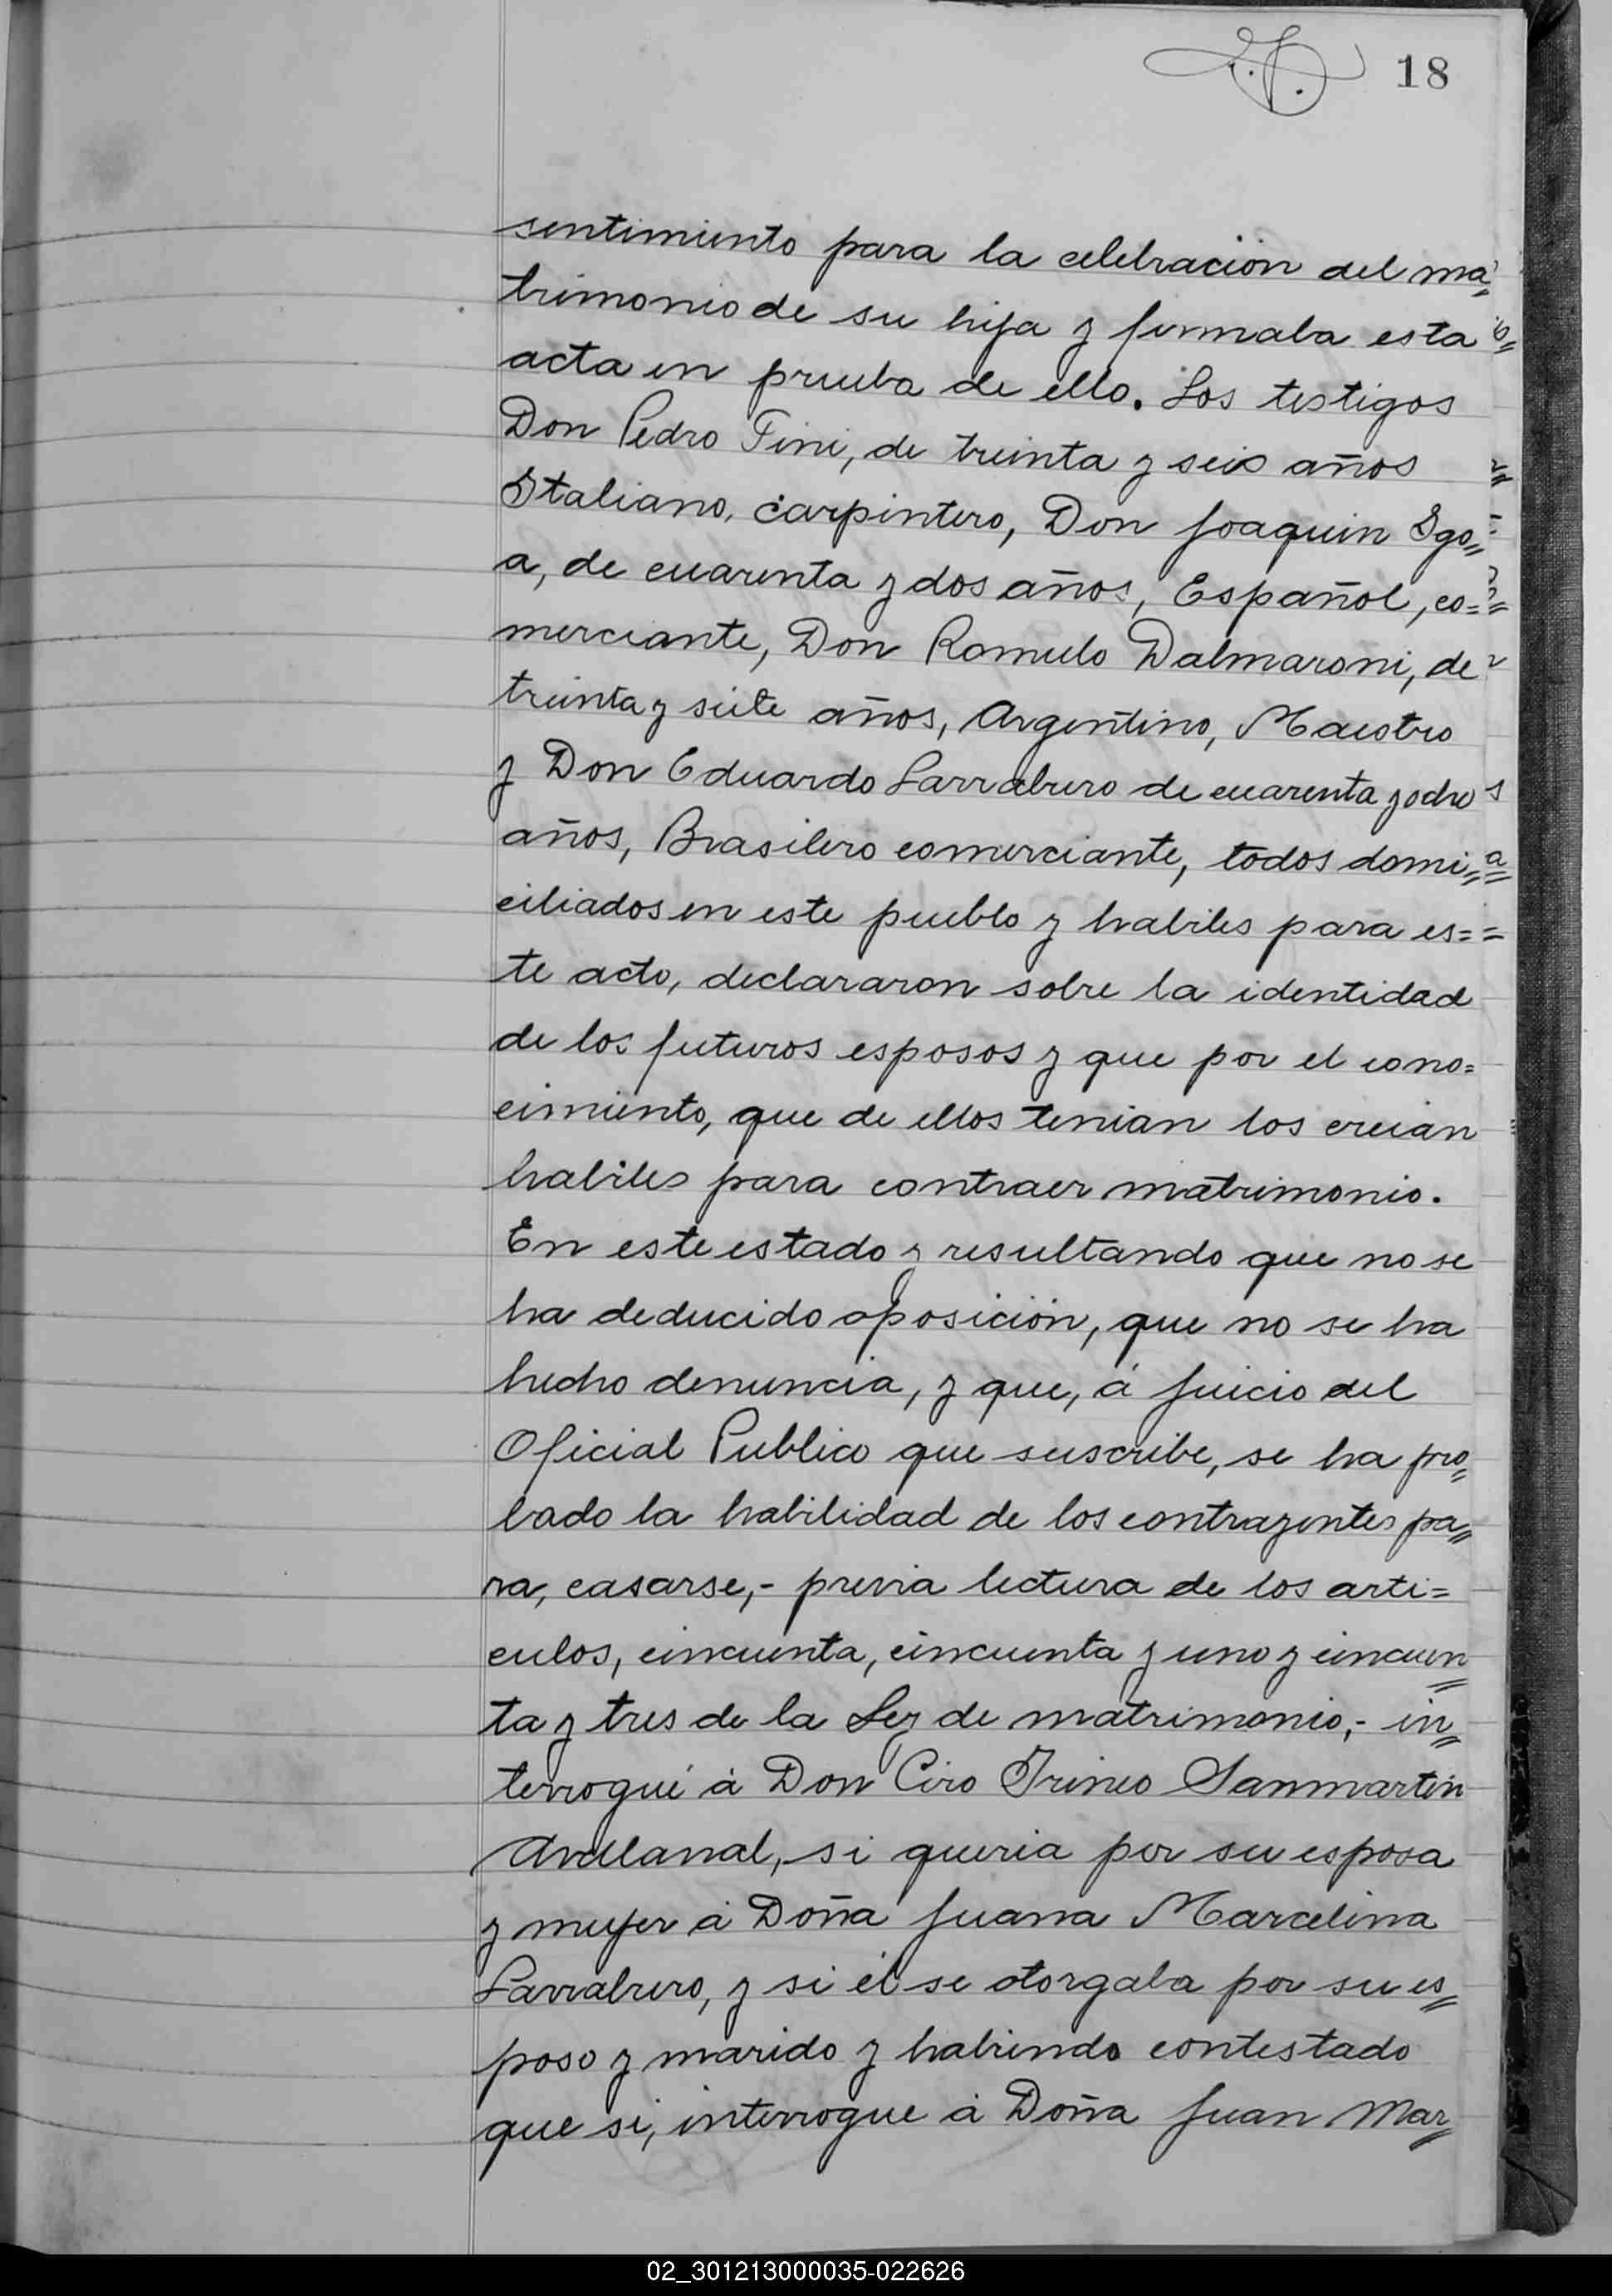 18
sentimiento para la celebración del ma=
trimonio de su hija y firmaba esta
acta en prueba de ello. Los testigos
Don Pedro Tini, de treinta y seis años
Italiano, carpintero, Don Joaquin Igo=
a, de cuarenta y dos años, Español, co=
merciante, Don Romulo Dalmaroni, de
treinta y siete años, Argentino, Maestro
y Don Eduardo Larrabure de cuarenta y ocho
años, Brasilero comerciante, todos domi=
ciliados en este pueblo y habiles para es=
te acto, declararon sobre la identidad
de los futuros esposos y que por el cono=
cimiento, que de ellos tenian los creian
habiles para contraer matrimonio.
En este estado y resultando que no se
ha deducido oposición, que no se ha
hecho denuncia, y que, á juicio del
Oficial Publico que suscribe, se ha pro=
bado la habilidad de los contrayentes pa=
ra, casarse,- previa lectura de los arti=
culos, cincuenta, cincuenta y uno y cincuen=
ta y tres de la Ley de matrimonio,- in=
terrogué á Don Ciro Irineo Sanmartin
Avellanal, si queria por su esposa
y mujer á Doña Juana Marcelina
Larrabure, y si él se otorgaba por su es=
poso y marido y habiendo contestado
que si, interrogue á Doña Juan Mar=
02_301213000035-022626